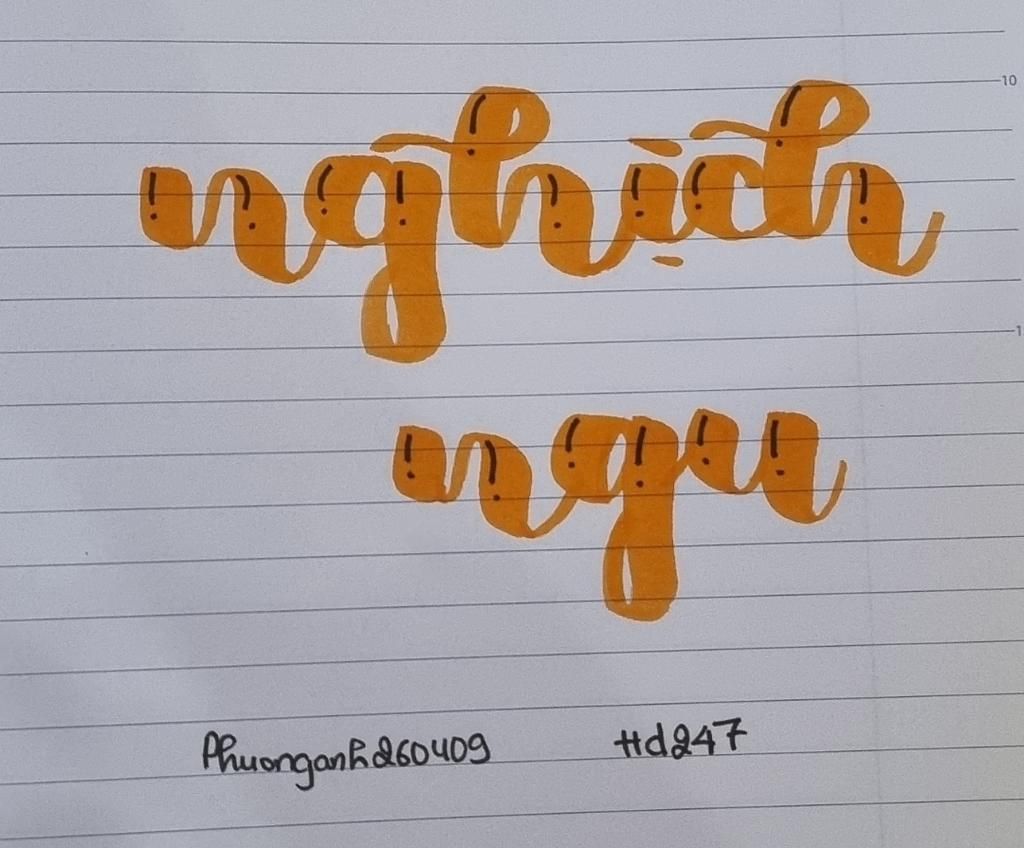 10
nghịch
ngu
Phuonganh260409 Hd247